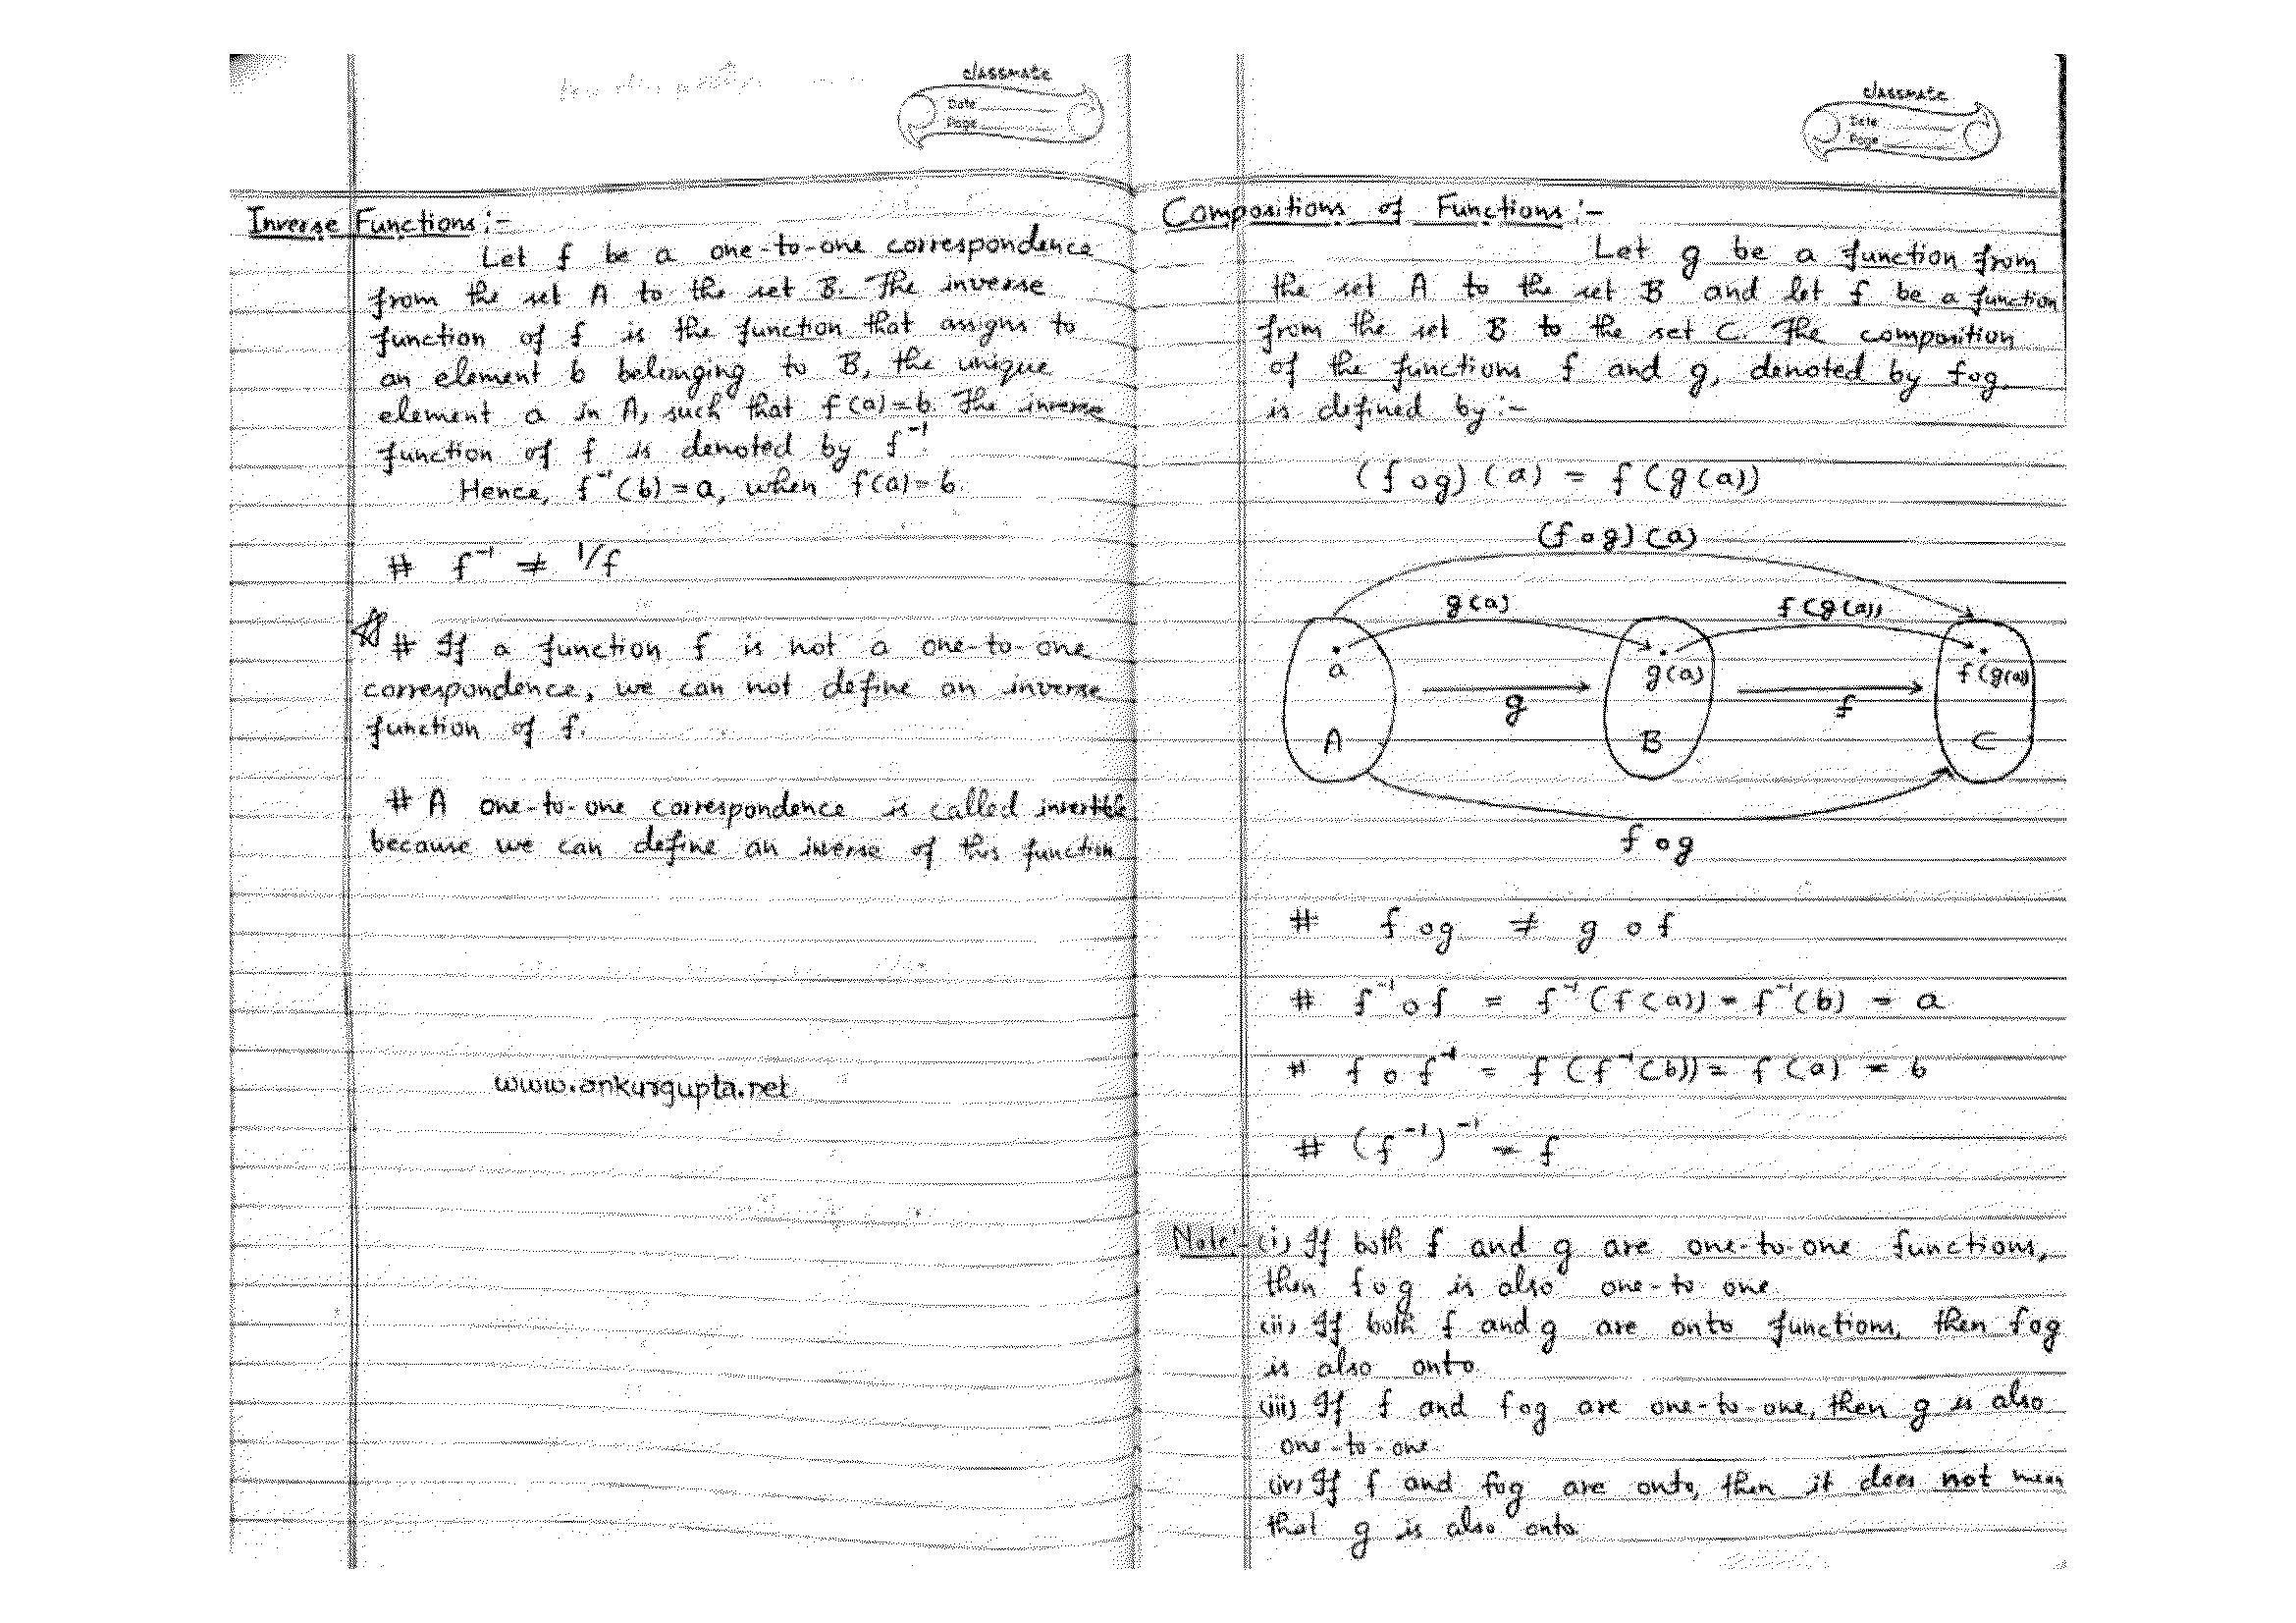 classmate
Date
Page
Inverse Functions :-
Let f be a one-to-one correspondence
from the set A to the set B. The inverse
function of f is the function that assigns to
an element b belonging to B, the unique
element a in A, such that f(a)=b. The inverse
function of f is denoted by f⁻¹.
Hence, f⁻¹(b) = a, when f(a)=b.
# f⁻¹ ≠ 1/f
# If a function f is not a one-to-one
correspondence, we can not define an inverse
function of f.
# A one-to-one correspondence is called invertible
because we can define an inverse of this function
www.ankurgupta.net
classmate
Date
Page
Compositions of Functions :-
Let g be a function from
the set A to the set B and let f be a function
from the set B to the set C. The composition
of the functions f and g, denoted by fog,
is defined by :-
(fog)(a) = f(g(a))
(fog)(a)
g(a) f(g(a))
a g(a) f(g(a))
g f
A B C
fog
# fog ≠ gof
# f⁻¹of = f⁻¹(f(a)) = f⁻¹(b) = a
# fof⁻¹ = f(f⁻¹(b)) = f(a) = b
# (f⁻¹)⁻¹ = f
Note:- (i) If both f and g are one-to-one functions,
then fog is also one-to one.
(ii) If both f and g are onto functions, then fog
is also onto.
(iii) If f and fog are one-to-one, then g is also
one-to-one.
(iv) If f and fog are onto, then it does not mean
that g is also onto.